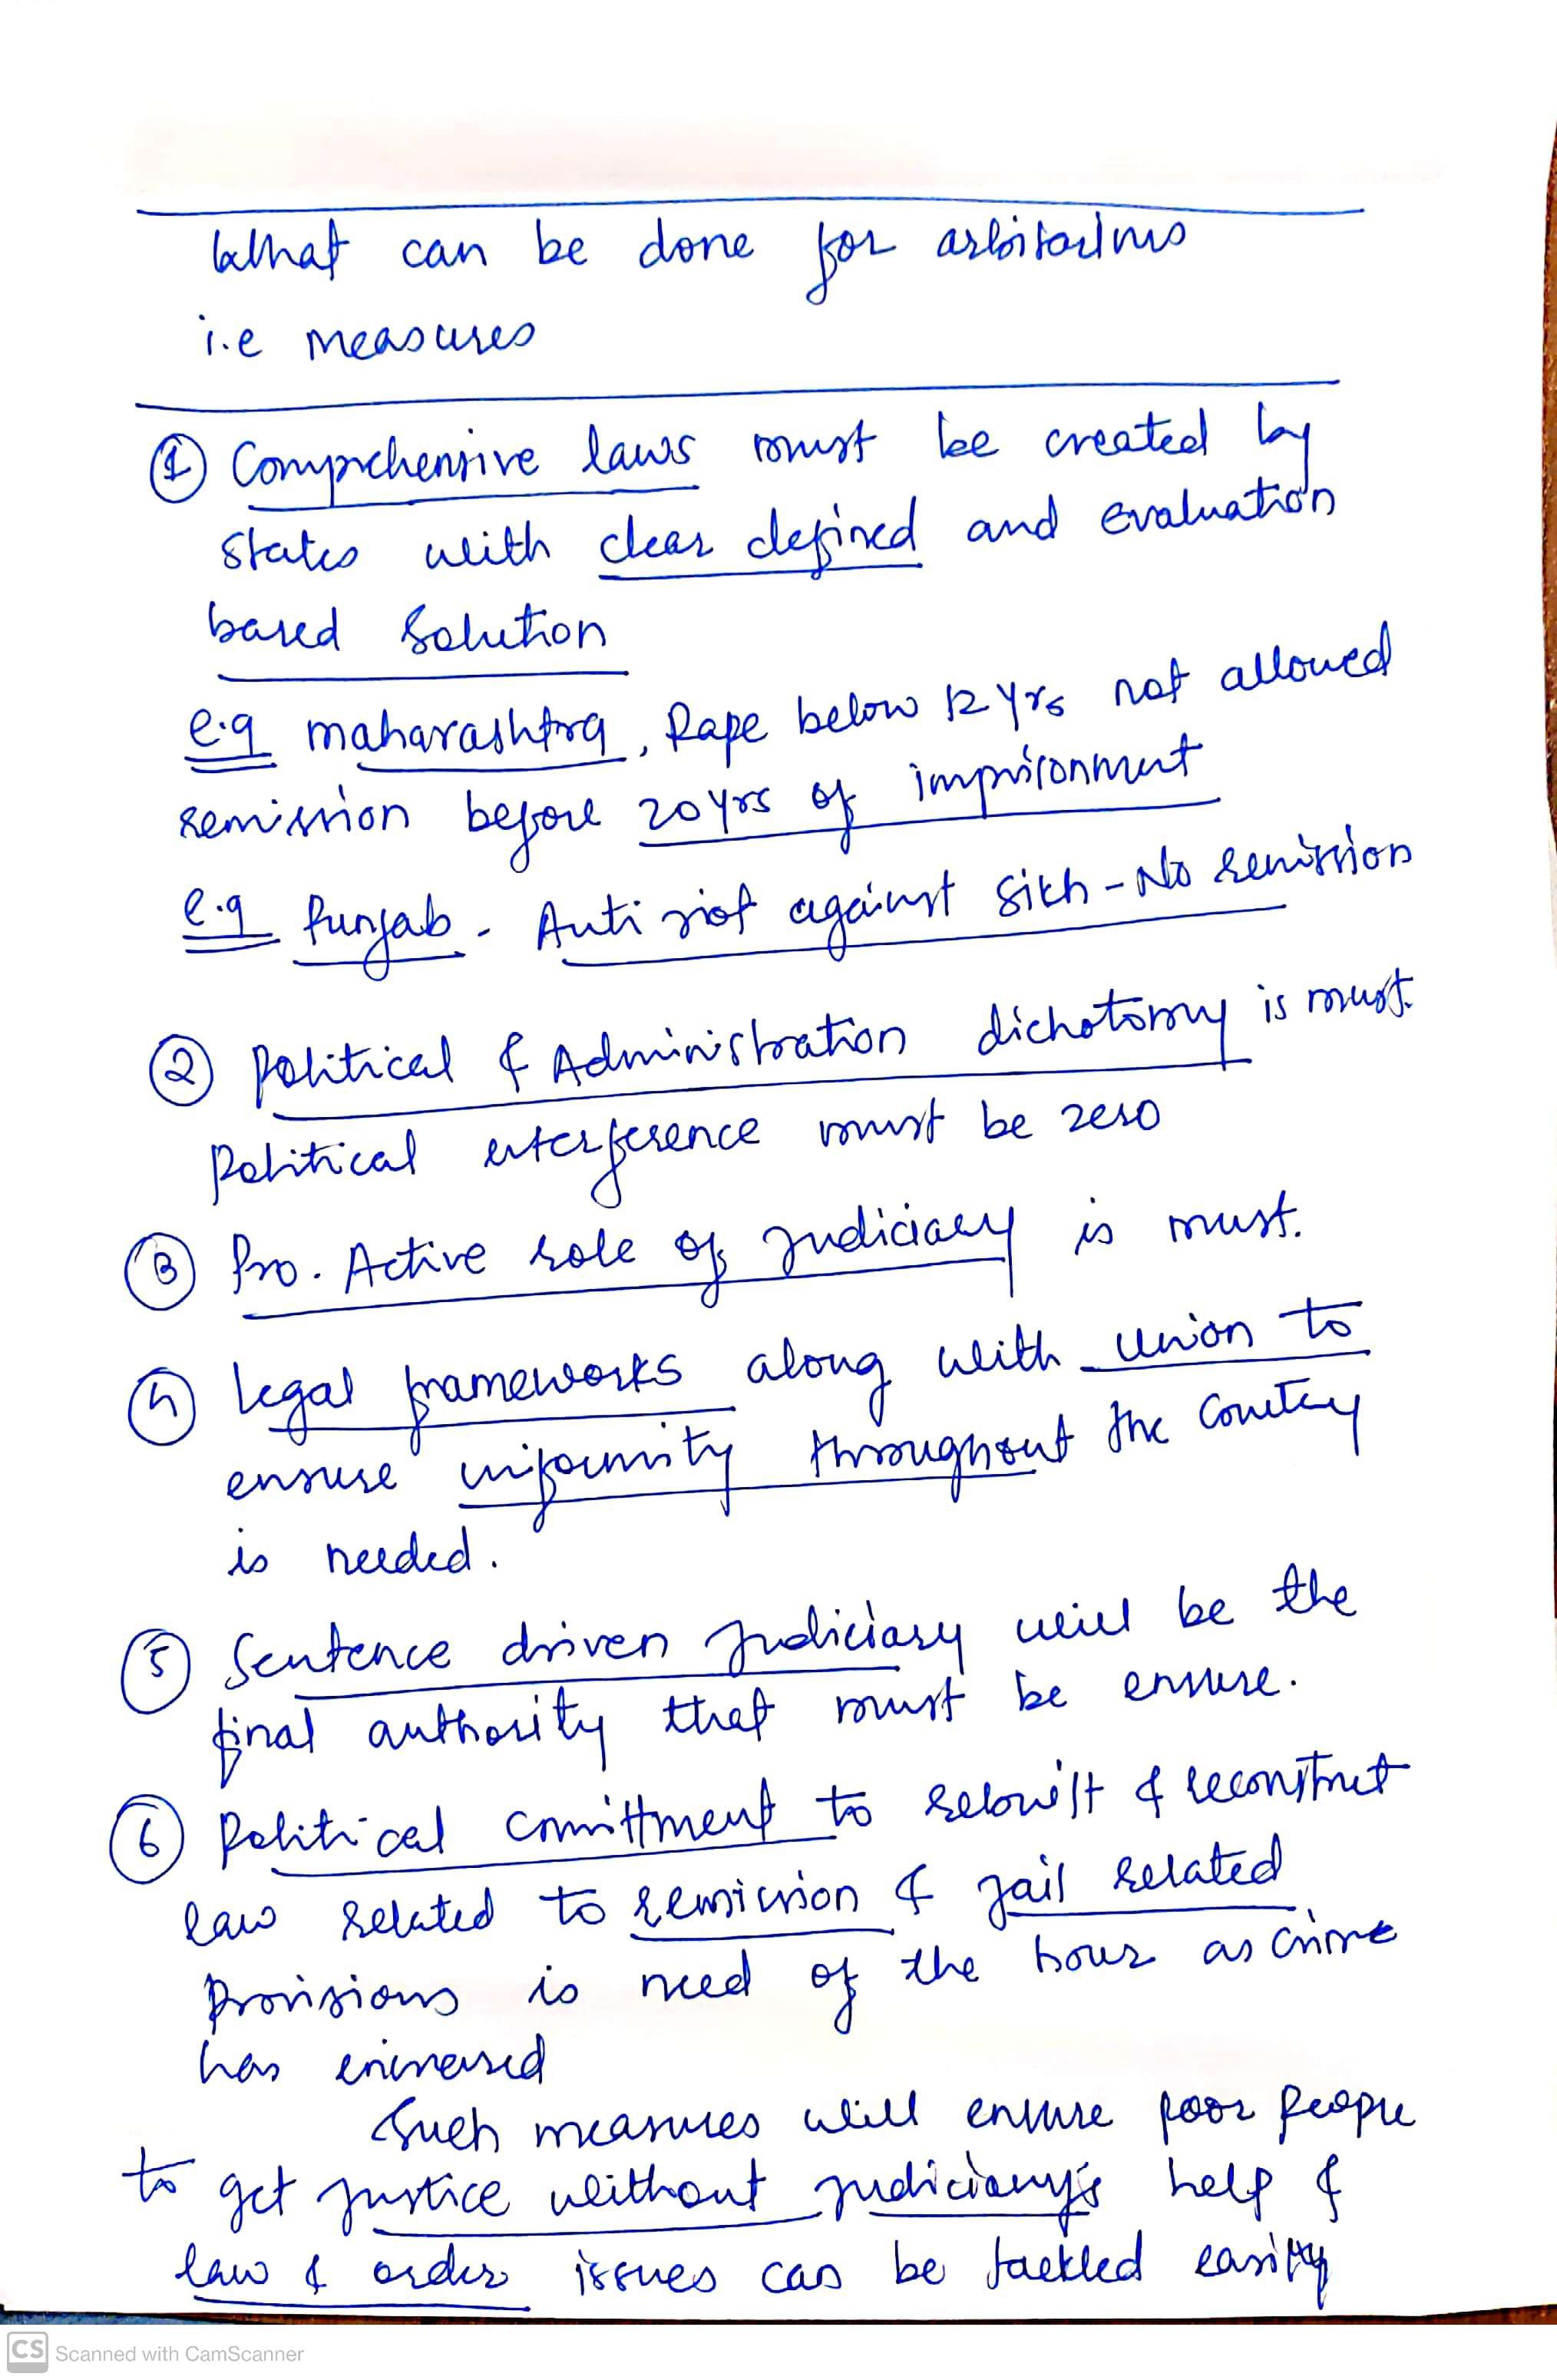 What can be done for arbitrariness
i.e measures
① Comprehensive laws must be created by
states with clear defined and evaluation
based solution
e.g maharashtra, Rape below 12 yrs not allowed
remission before 20 yrs of imprisonment
e.g Punjab - Anti riot against Sikh - No remission
② Political & Administration dichotomy is must.
Political interference must be zero
③ Pro. Active role of judiciary is must.
④ Legal frameworks along with union to
ensure uniformity throughout the country
is needed.
⑤ Sentence driven judiciary will be the
final authority that must be ensure.
⑥ Political committment to & reconstruct
law related to remission & jail related
provisions is need of the hour as crime
has
Such measures will ensure poor people
to get justice without judiciary's help &
law & order issues can be tackled easily
CS Scanned with CamScanner